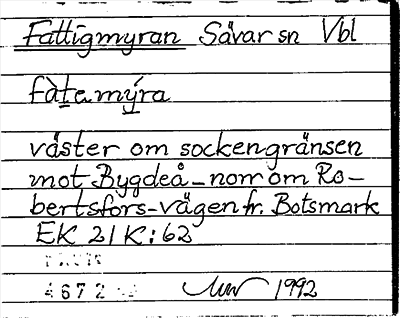 Fattigmyran Sävar sn Vbl
fàtamy̆ra
väster om sockengränsen
mot Bygdeå - norr om Ro-
bertsfors-vägen fr. Botsmark
EK 21K:62
4672
1992